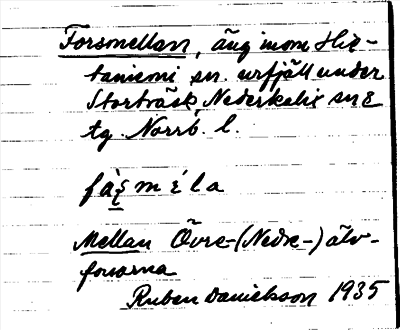 Forsmellan, äng inom Hie-
taniemi sn. urfjäll under
Storträsk, Nederkalix sn o
tg. Norrb. l.
fà̱ʂ m é l a
Mellan Övre-(Nedre-) älv-
forsarna
Ruben Danielsson 1935